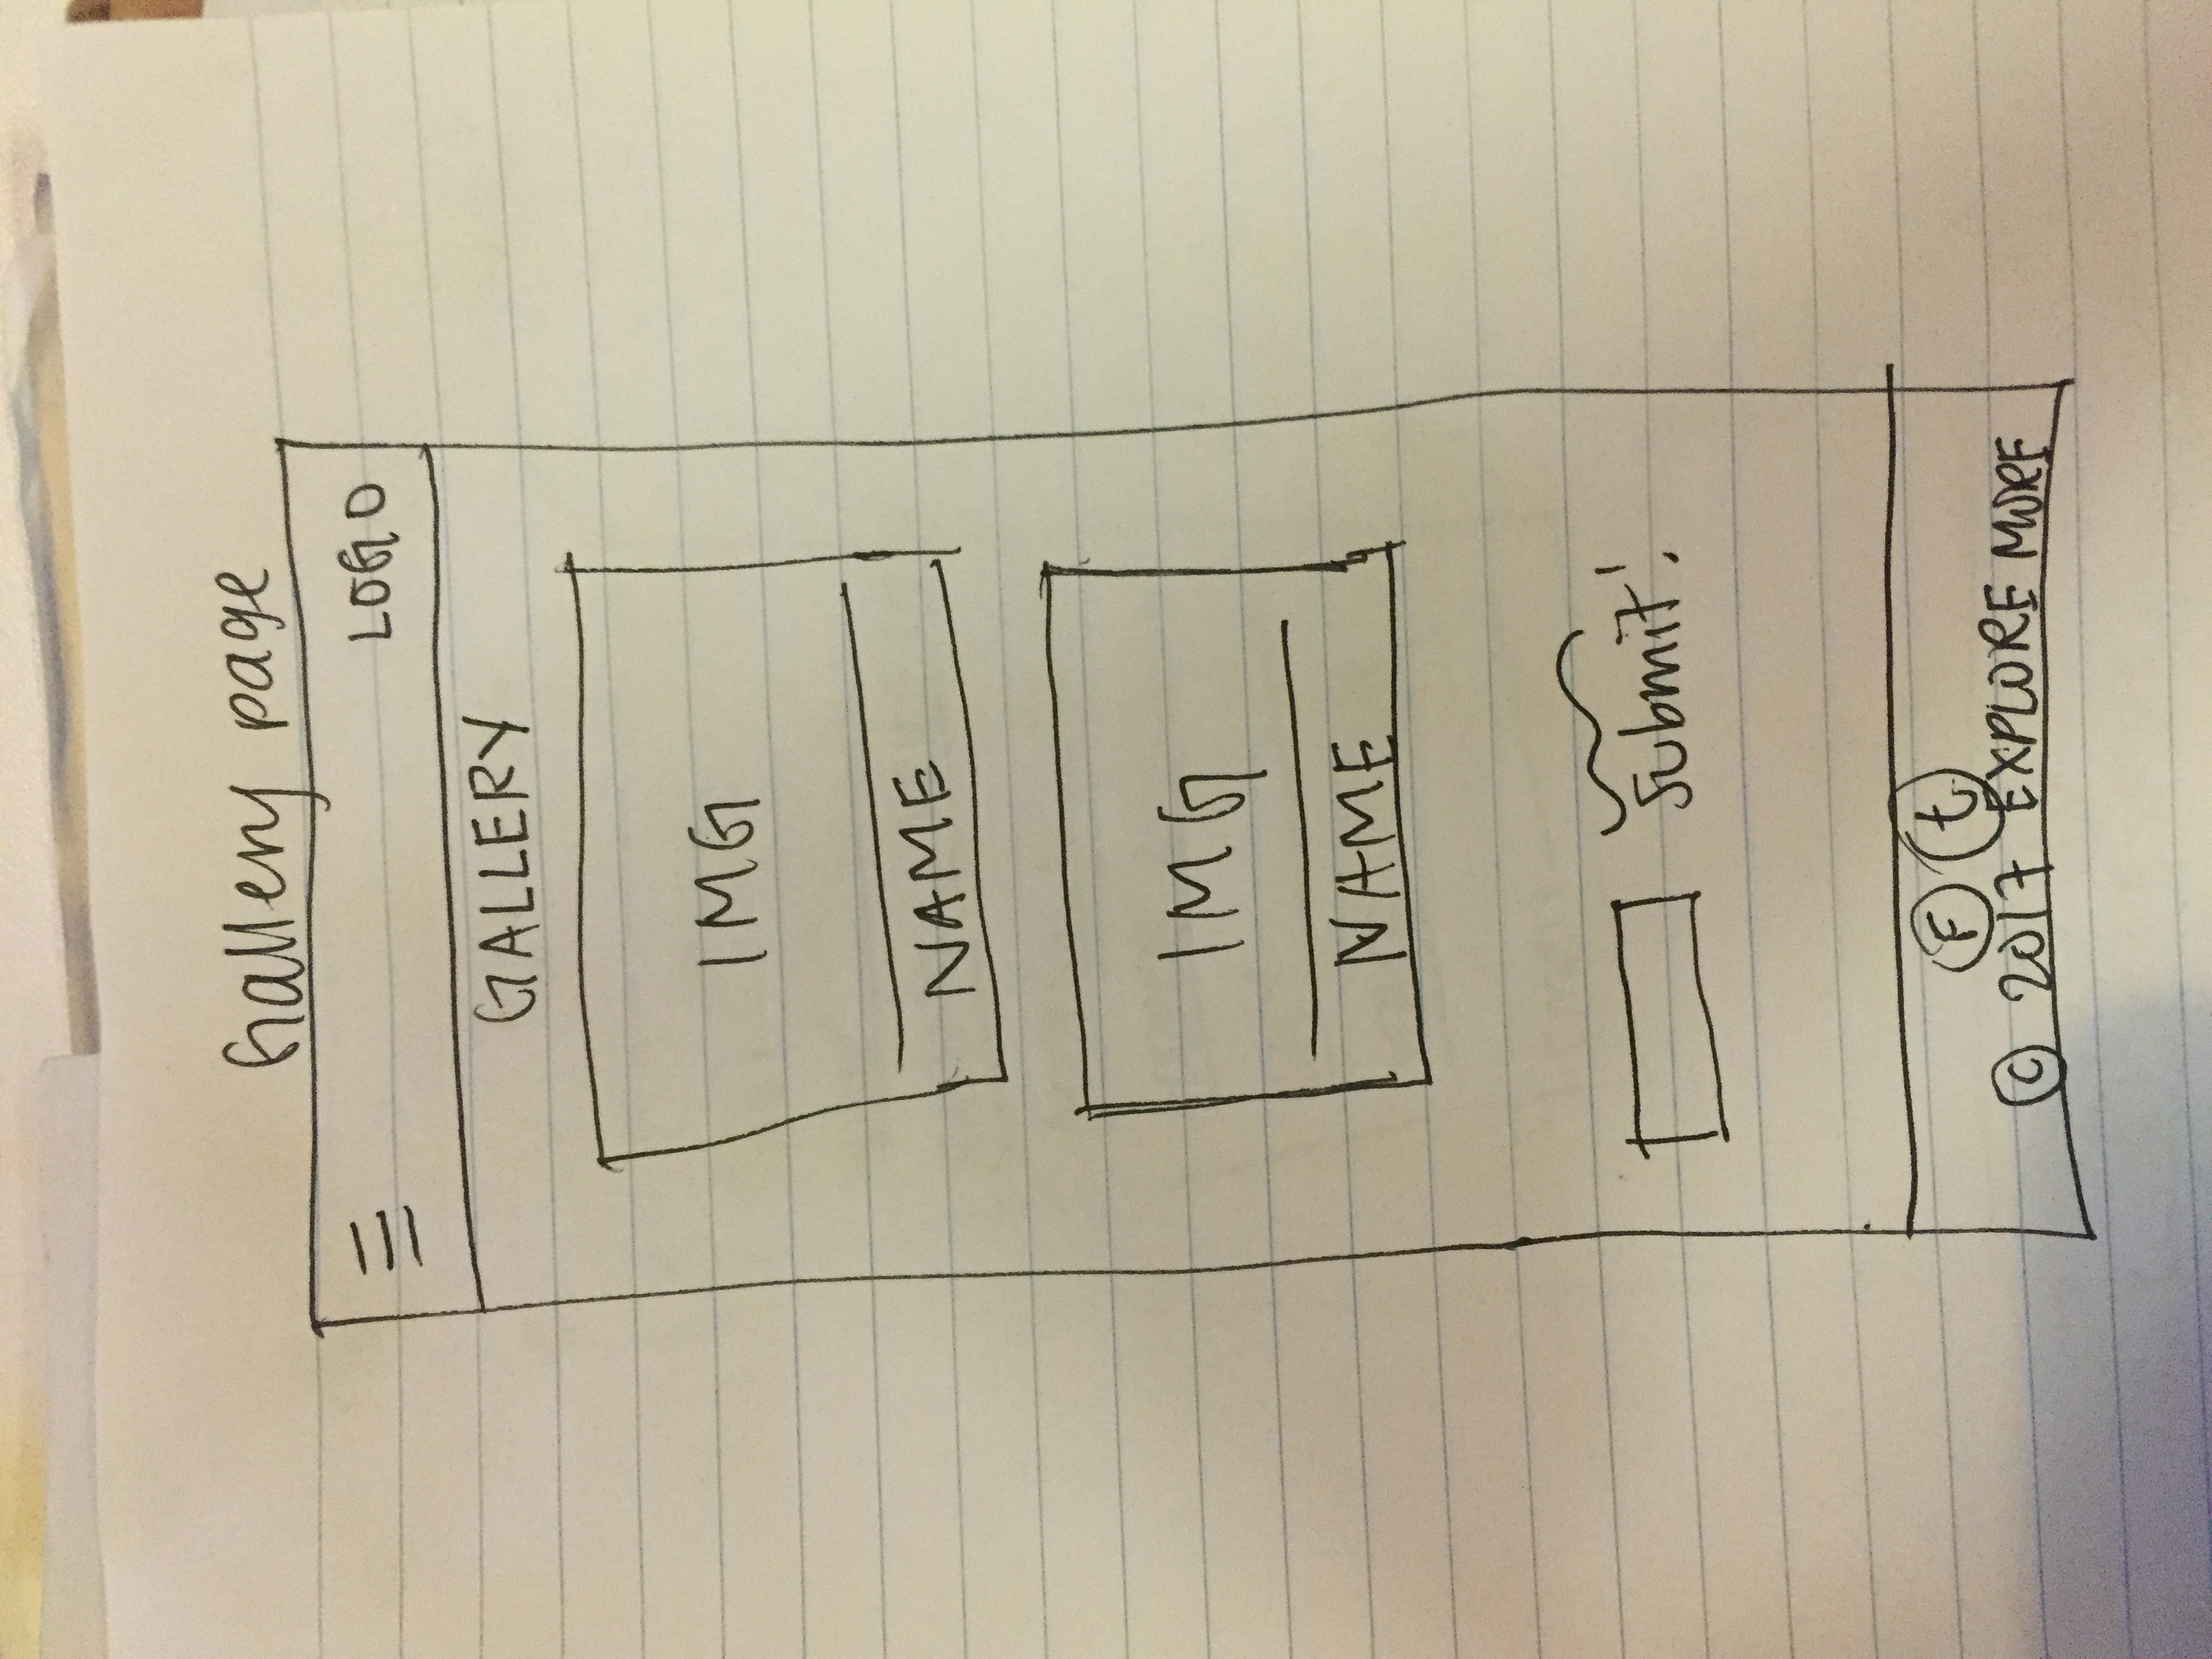 Gallery page
LOGO
GALLERY
IMG
NAME
IMG
NAME
Submit!
F t
© 2017 EXPLORE MORE